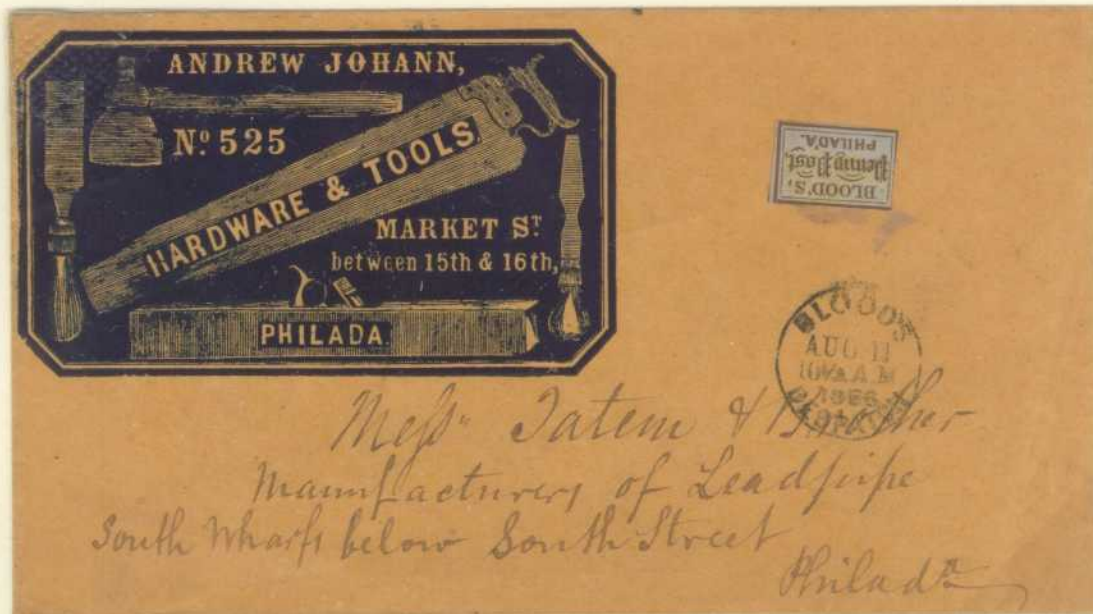 ANDREW JOHANN,
No. 525
HARDWARE & TOOLS.
MARKET ST.
between 15th & 16th,
PHILADA.
BLOOD'S,
Penny Post,
PHILAD'A.
BLOOD'S
AUG 11
A.M
Messrs Tatem & Brother
Manufacturers of Leadpipe
South Wharfs below South Street
Philada